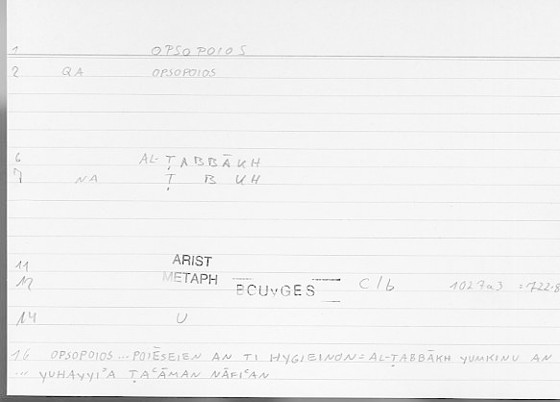 1 OPSOPOIOS
2 QA OPSOPOIOS
6 AL-ṬABBĀKH
7 NA Ṭ B KH
11 ARIST
12 METAPH BOUYGES C/b 1027a3 =722.8
14 U
16 OPSOPOIOS...POIĒSEIEN AN TI HYGIEINON=AL-ṬABBĀKH YUMKINU AN
... YUHAYYIʾA ṬAʿĀMAN NĀFIʿAN